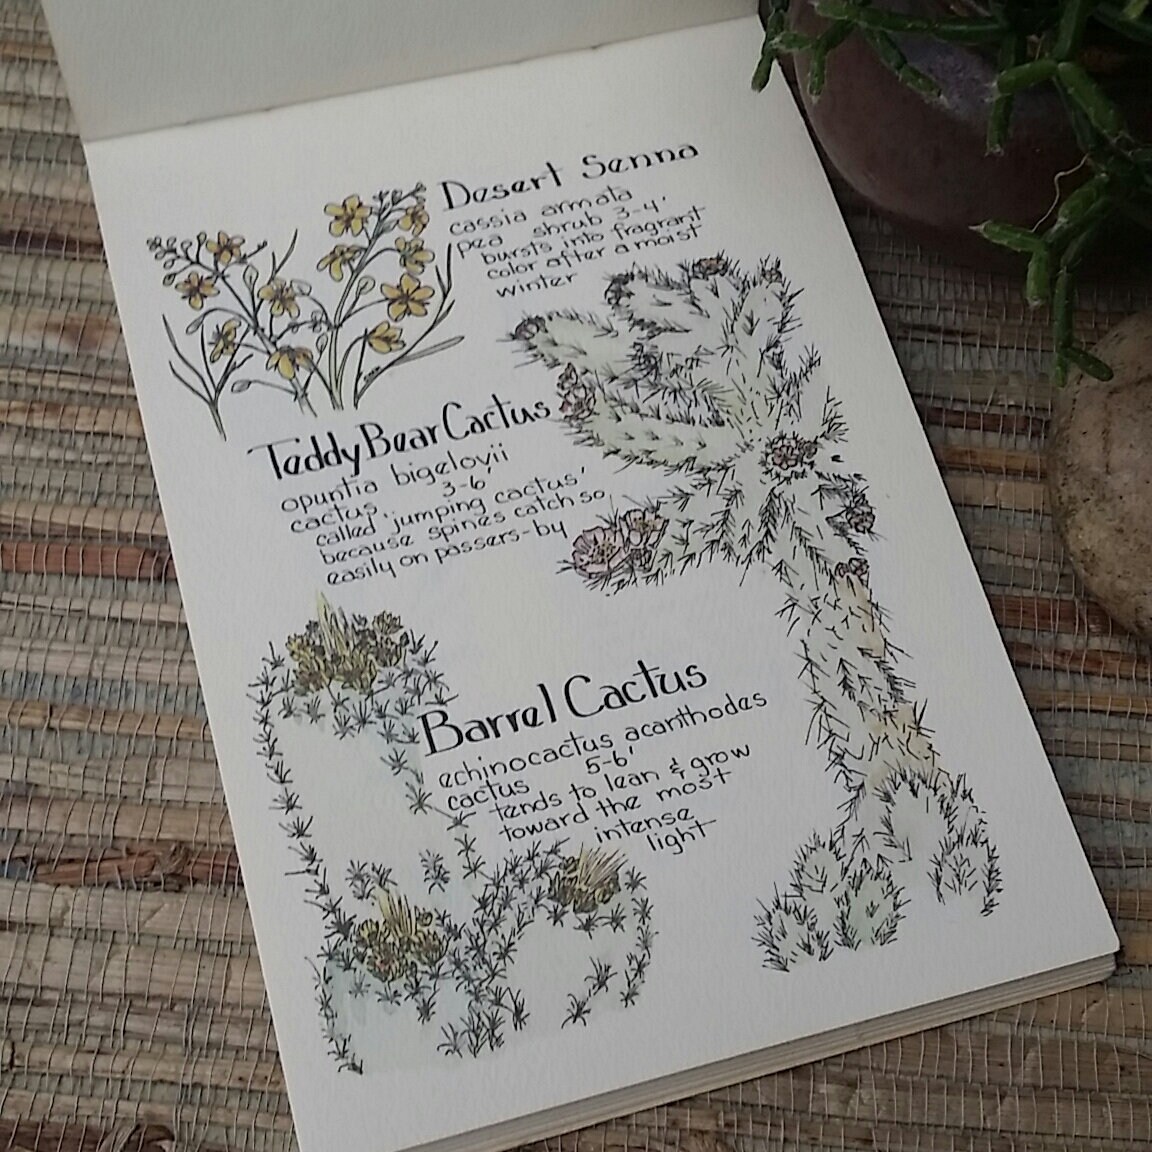 Desert Senna
cassia armata
pea shrub 3-4'
bursts into fragrant
color after a moist
winter
Teddy Bear Cactus
opuntia bigelovii
cactus 3-6'
called "jumping cactus"
because spines catch so
easily on passers-by
Barrel Cactus
echinocactus acanthodes
cactus 5-6'
tends to lean & grow
toward the most
intense
light